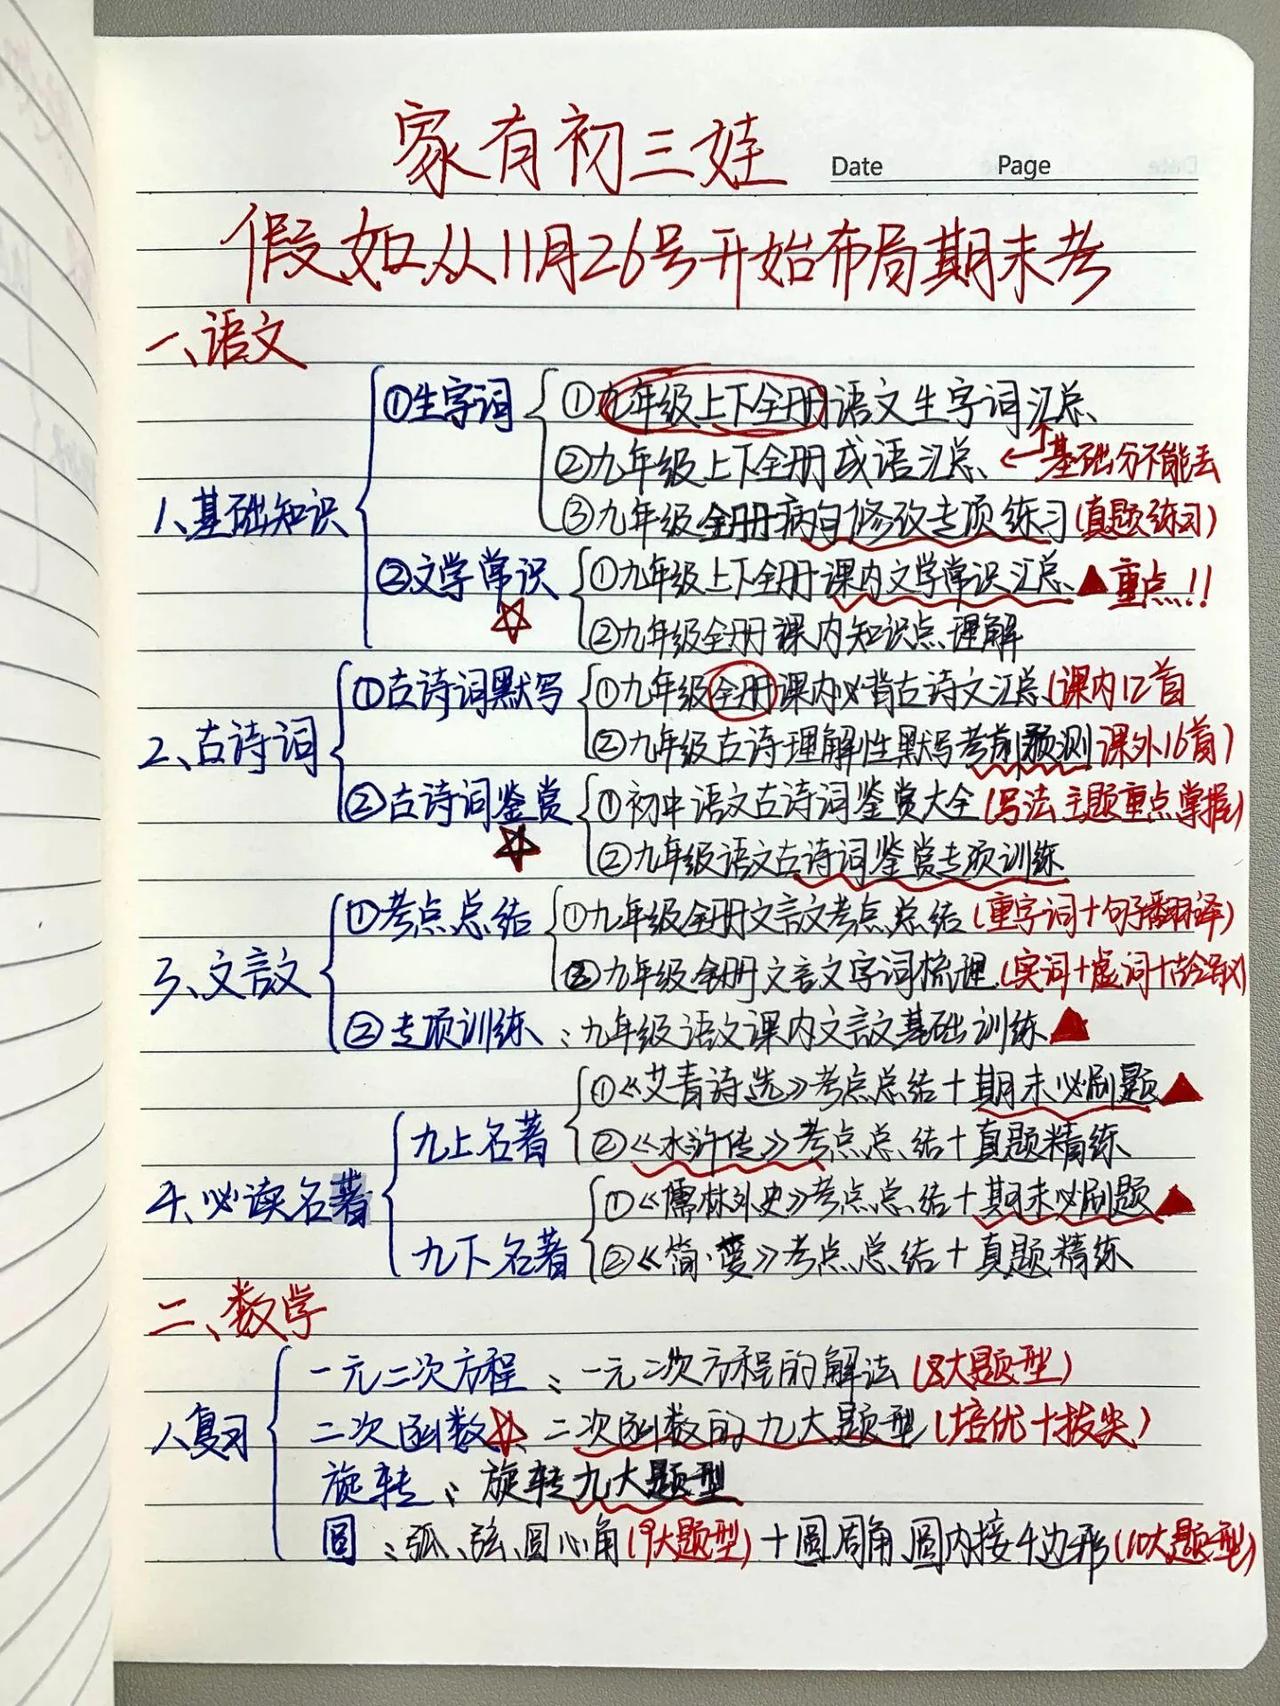 家有初三娃
Date Page
假如从11月26号开始布局期末考
一、语文
1、基础知识
①生字词
①九年级上下全册语文生字词汇总
②九年级上下全册成语汇总 基础分不能丢
③九年级全册病句修改专项练习(真题练习)
②文学常识
①九年级上下全册课内文学常识汇总 重点!!
②九年级全册课内知识点理解
2、古诗词
①古诗词默写
①九年级全册课内必背古诗文汇总(课内12首
②九年级古诗理解性默写考前预测 课外16首)
②古诗词鉴赏
①初中语文古诗词鉴赏大全(写法主题重点掌握)
②九年级语文古诗词鉴赏专项训练
3、文言文
①考点总结
①九年级全册文言文考点总结(重字词+句子翻译)
②九年级全册文言文字词梳理(实词+虚词+古今异义)
②专项训练:九年级语文课内文言文基础训练
4、必读名著
九上名著
①《艾青诗选》考点总结+期末必刷题
②《水浒传》考点总结+真题精练
九下名著
①《儒林外史》考点总结+期末必刷题
②《简·爱》考点总结+真题精练
二、数学
1、复习
一元二次方程:一元二次方程的解法(8大题型)
二次函数:二次函数的九大题型(培优+拔尖)
旋转:旋转九大题型
圆:弧、弦、圆心角(9大题型)+圆周角、圆内接4边形(10大题型)